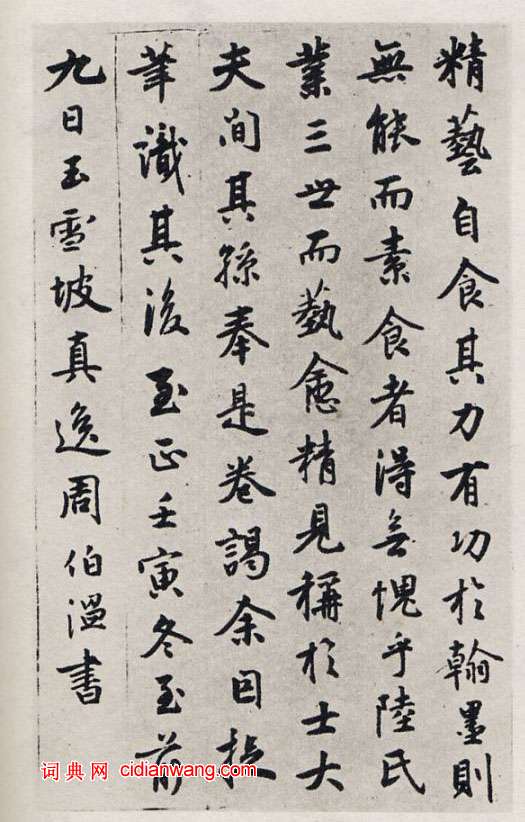 精藝自食其力有功於翰墨則
無能而素食者得無愧乎陸氏
業三世而藝愈精見稱於士大
夫間其孫奉是卷謁余因援
筆識其後至正壬寅冬至前
九日玉雪坡真逸周伯溫書
词典网 cidianwang.com